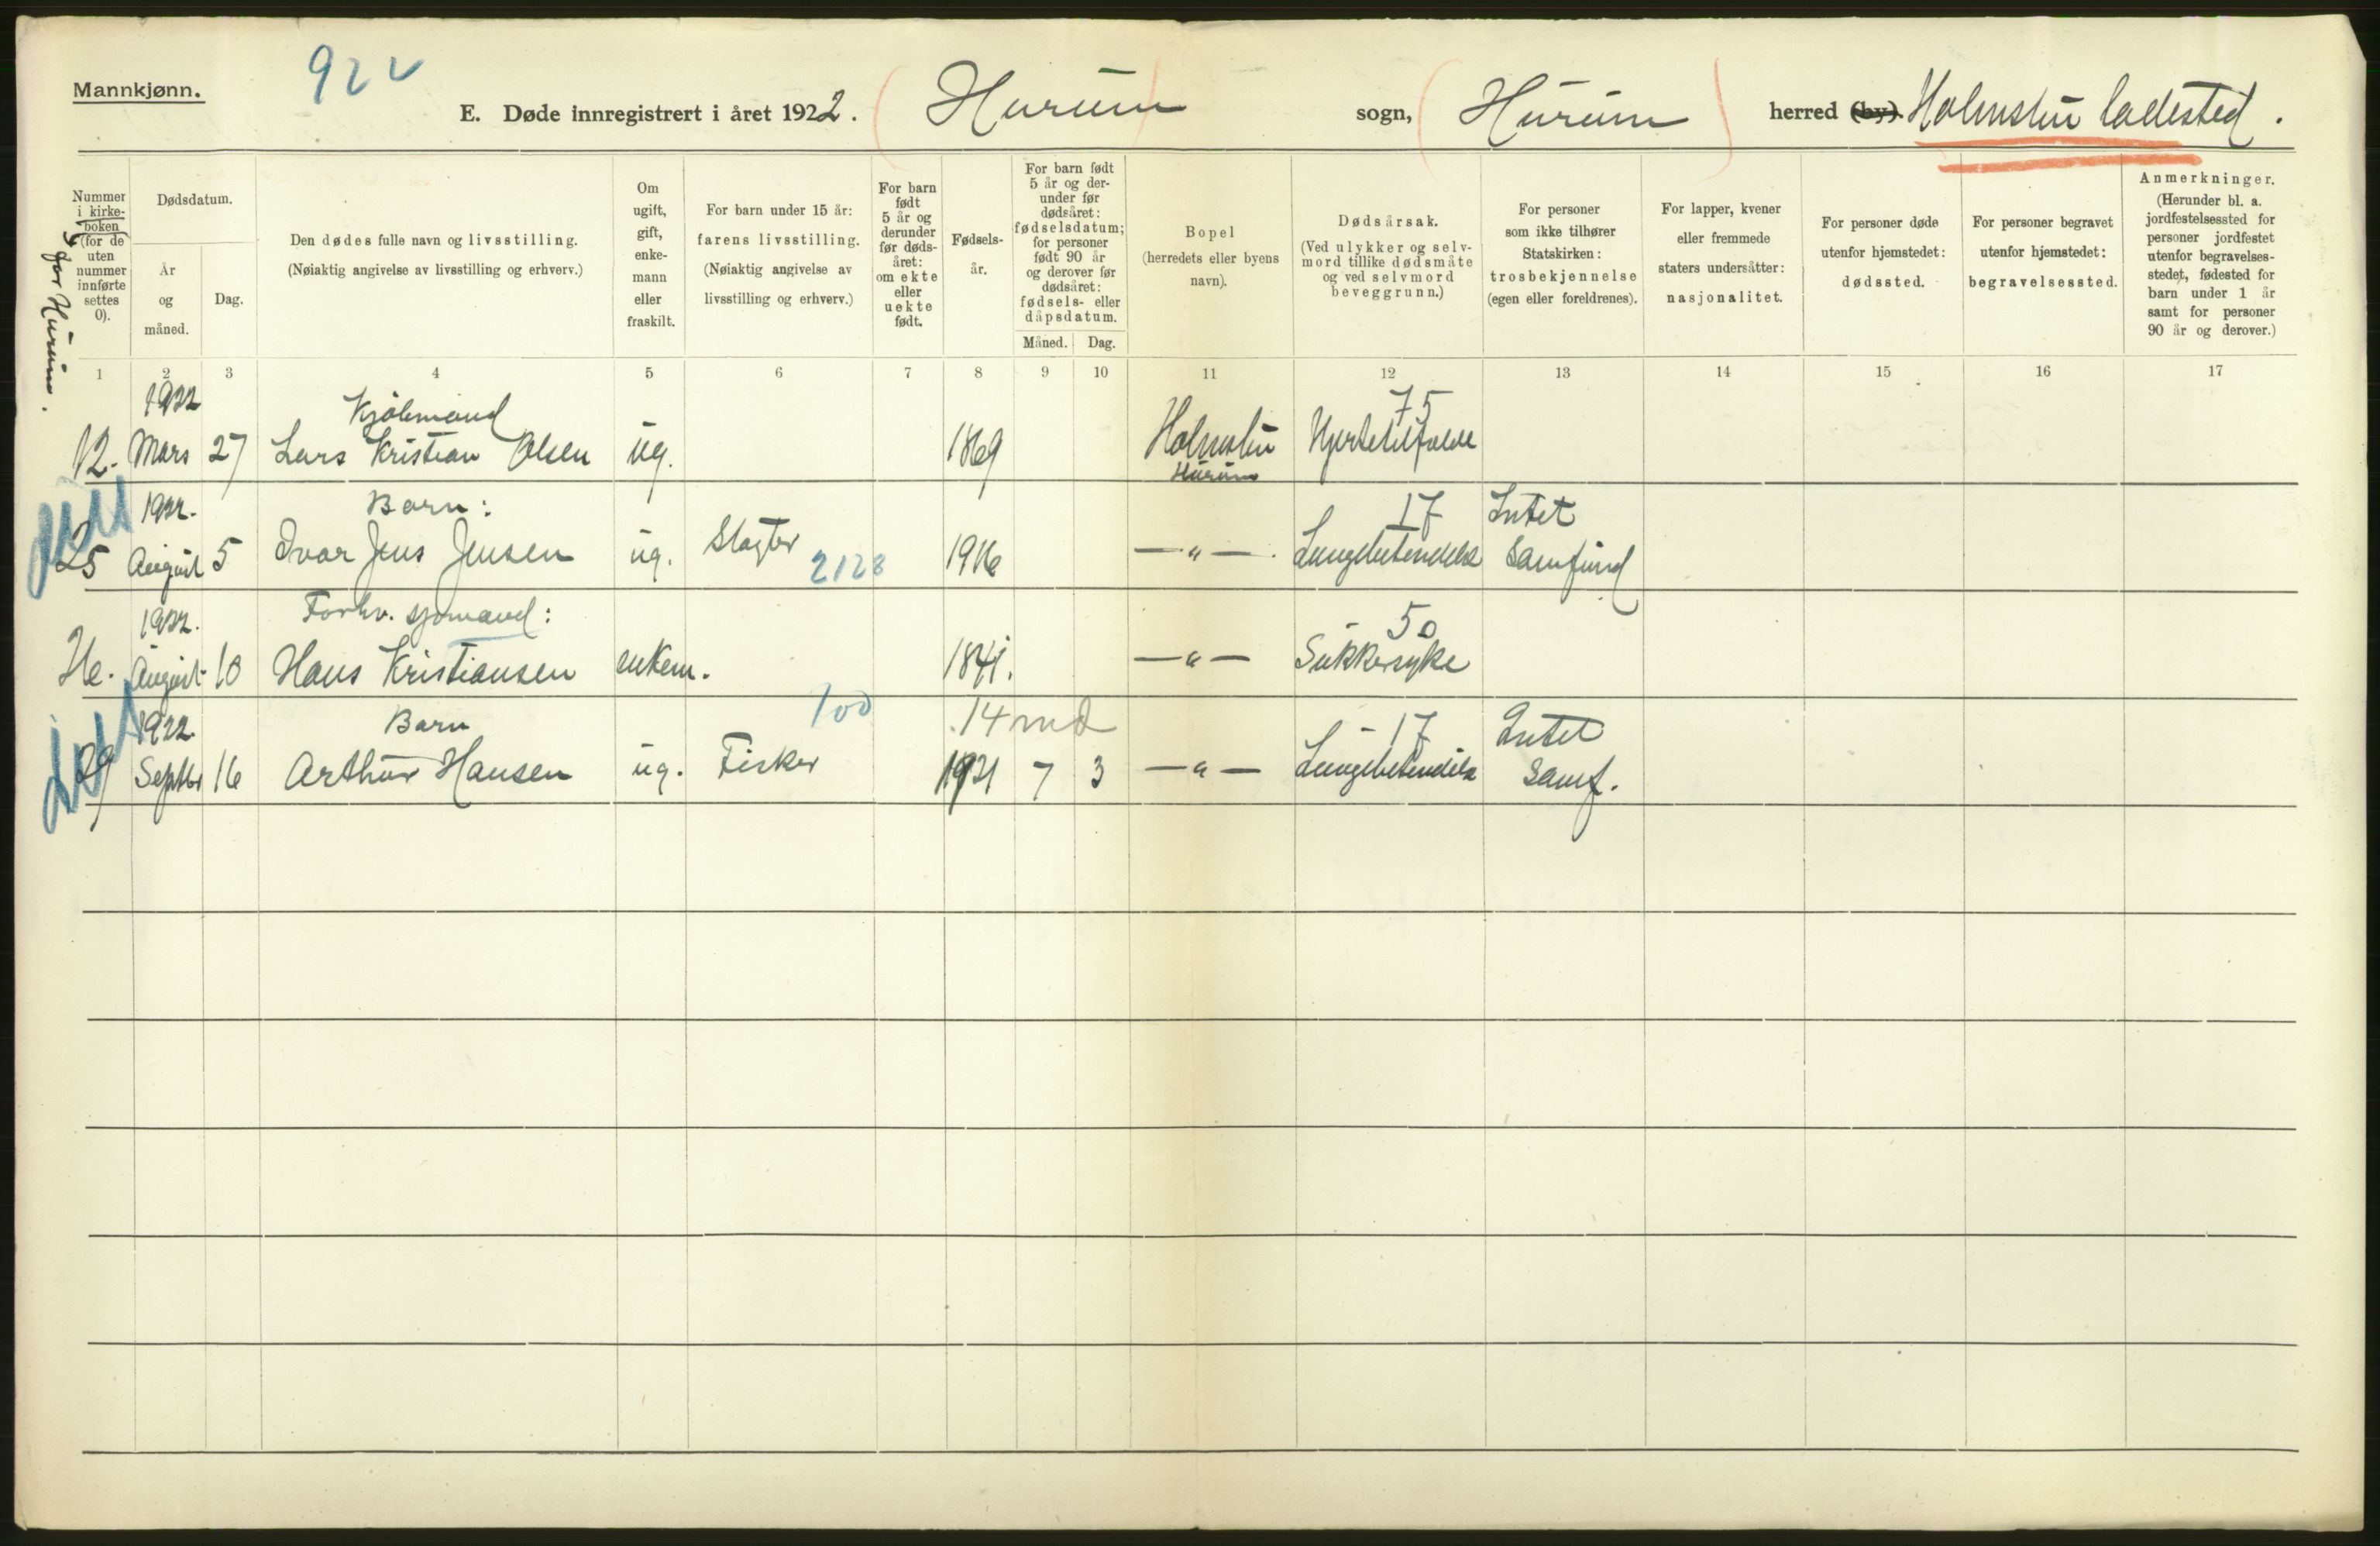 Mannkjønn.
922
E. Døde innregistrert i året 1922. (Hurum) sogn, (Hurum) herred (by). Holmsbu ladested.
for Hurum.
Nummer i kirke-boken (for de uten nummer innførte settes 0).
Dødsdatum.
År og måned.
Dag.
Den dødes fulle navn og livsstilling.
(Nøiaktig angivelse av livsstilling og erhverv.)
Om ugift, gift, enke-mann eller fraskilt.
For barn under 15 år: farens livsstilling.
(Nøiaktig angivelse av livsstilling og erhverv.)
For barn født 5 år og derunder før døds-året: om ekte eller uekte født.
Fødsels-år.
For barn født 5 år og der-under før dødsåret: fødselsdatum; for personer født 90 år og derover før dødsåret: fødsels- eller dåpsdatum.
Måned. Dag.
Bopel
(herredets eller byens navn).
Dødsårsak.
(Ved ulykker og selv-mord tillike dødsmåte og ved selvmord beveggrunn.)
For personer som ikke tilhører Statskirken: trosbekjennelse (egen eller foreldrenes).
For lapper, kvener eller fremmede staters undersåtter: nasjonalitet.
For personer døde utenfor hjemstedet: dødssted.
For personer begravet utenfor hjemstedet: begravelsessted.
Anmerkninger.
(Herunder bl. a. jordfestelsessted for personer jordfestet utenfor begravelses-stedet, fødested for barn under 1 år samt for personer 90 år og derover.)
1 2 3 4 5 6 7 8 9 10 11 12 13 14 15 16 17
1922 Kjølemand 75
12. Mars 27 Lars Kristian Olsen ug. 1869 Holmsbu Hjertetilfelde
Hurum
1922. Barn: 17 Intet
25 August 5 Ivar Jens Jensen ug. Slagter 2128 1916 —"—. Lungebetendelse Samfund
1922. Forhv. sjømand: 50
26. August 10 Hans Kristiansen enkem. 1841. —"— Sukkersyke
1922. Barn 100 14 md 17 Intet
29 Septbr 16 Arthur Hansen ug. Fisker 1921 7 3 —"— Lungebetendelse Samf.